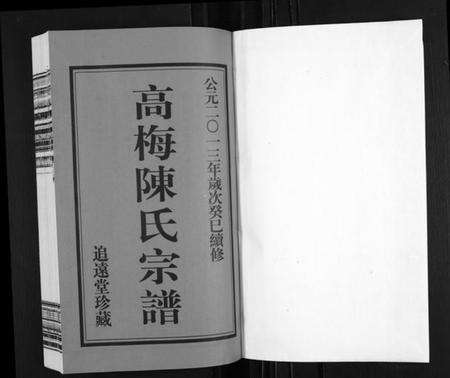 公元二〇一三年歲次癸巳續修
高梅陳氏宗譜
追遠堂珍藏